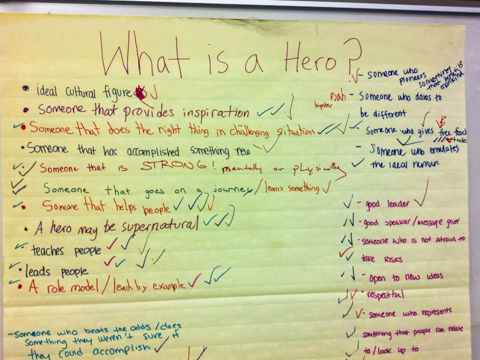 What is a Hero?
• ideal cultural figure
• Someone that provides inspiration
• Someone that does the right thing in challenging situation
• Someone that has accomplished something new
• Someone that is STRONG! mentally or physically
• Someone that goes on a journey / learns something
• Someone that helps people
• A hero may be supernatural
• teaches people
• leads people
• A role model / lead by example
- Someone who beats the odds / does
something they weren't sure if
they could accomplish
- Someone who
pioneers
something
Nah
hipster
- Someone who dares to
be different
- Someone who gives free food
- Someone who emulates
the ideal human
- good leader
- good speaker/message giver
- someone who is not afraid to
take risks
- open to new ideas
- respectful
- someone who represents
something that people can relate
to / look up to